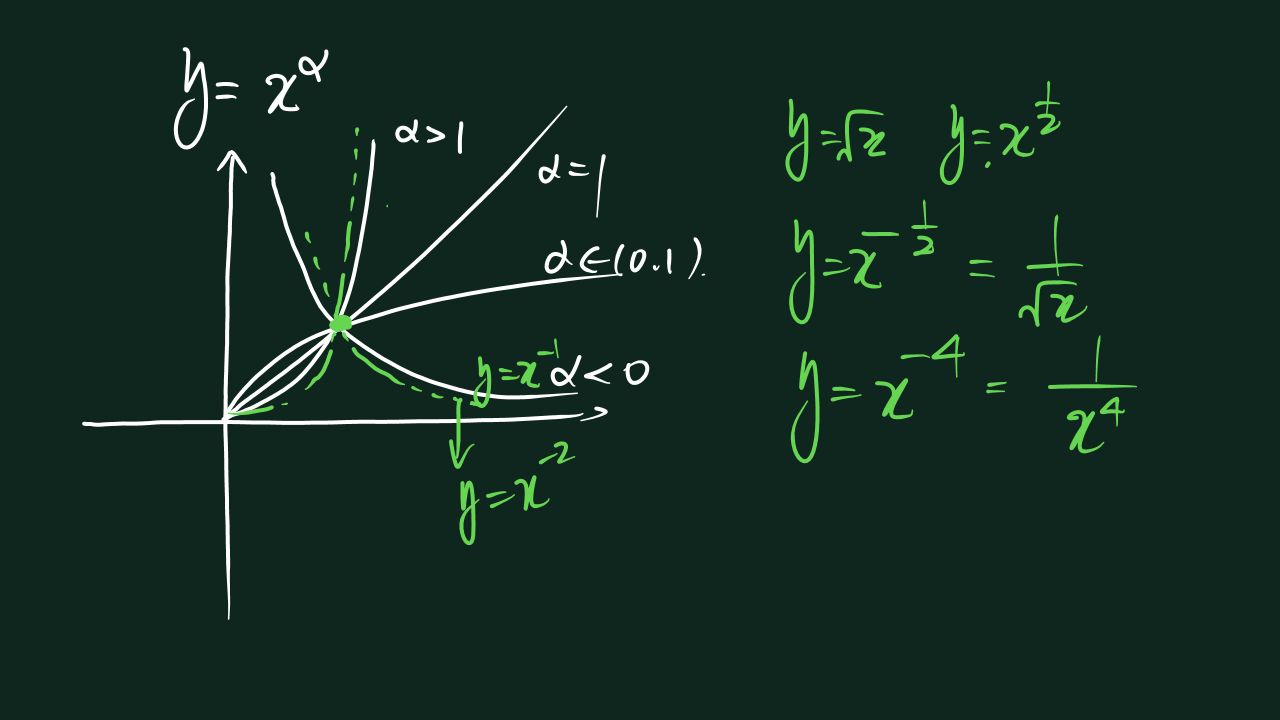 y = x^α
α > 1
α = 1
α ∈ (0.1).
y = x^-1
α < 0
y = x^-2
y = √x y = x^1/2
y = x^-1/2 = 1/√x
y = x^-4 = 1/x^4